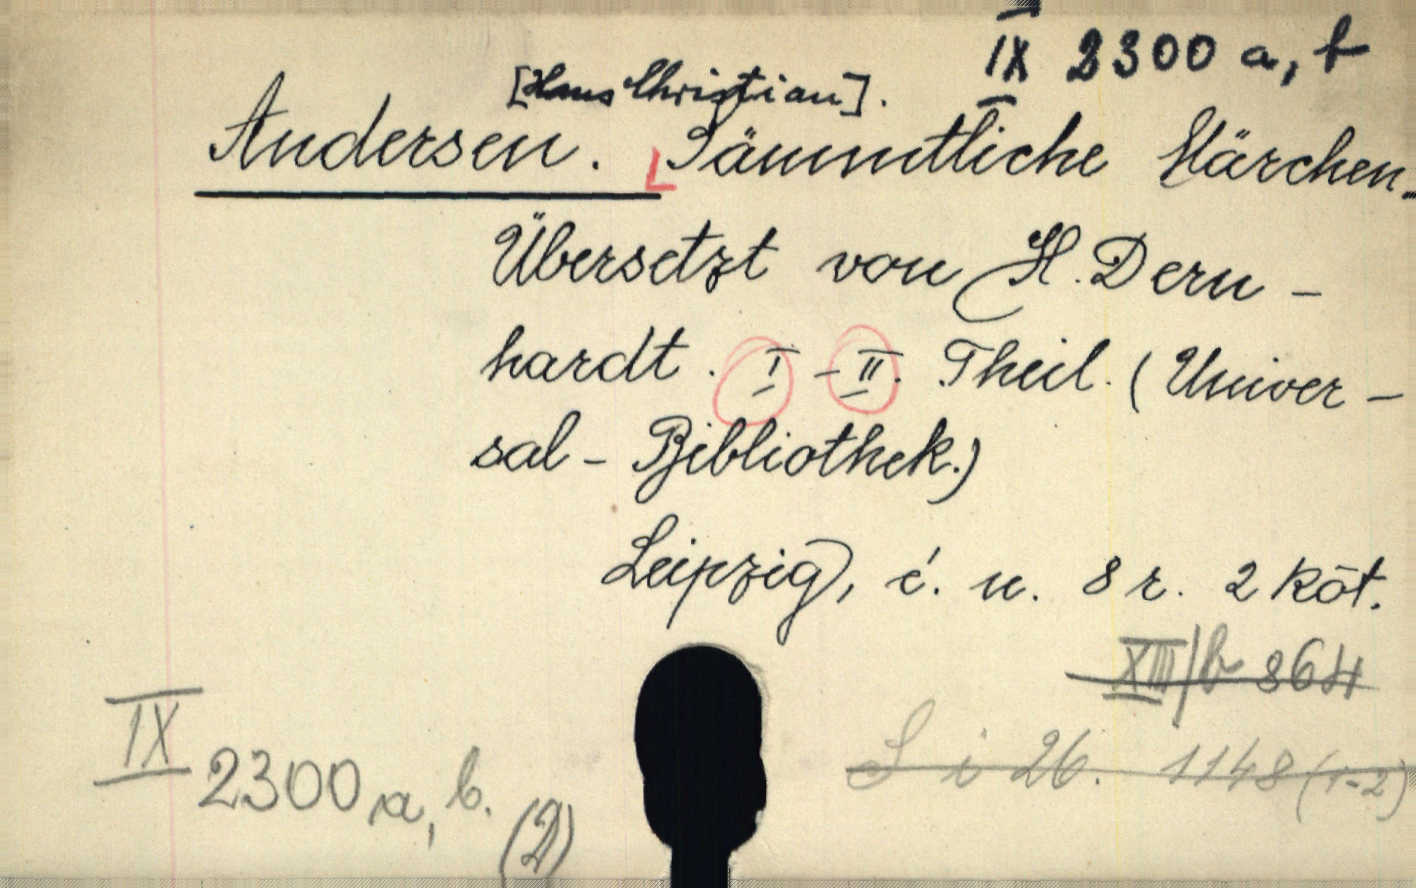 IX 2300 a, b
[Hans Christian].
Andersen. Sämmtliche Märchen.
Übersetzt von H. Denn-
hardt. I-II. Theil. (Univer-
sal-Bibliothek.)
Leipzig, é. n. 8 r. 2 köt.
XIII/b 864
S i 26. 1148 (1-2)
IX 2300 a, b.
(2)